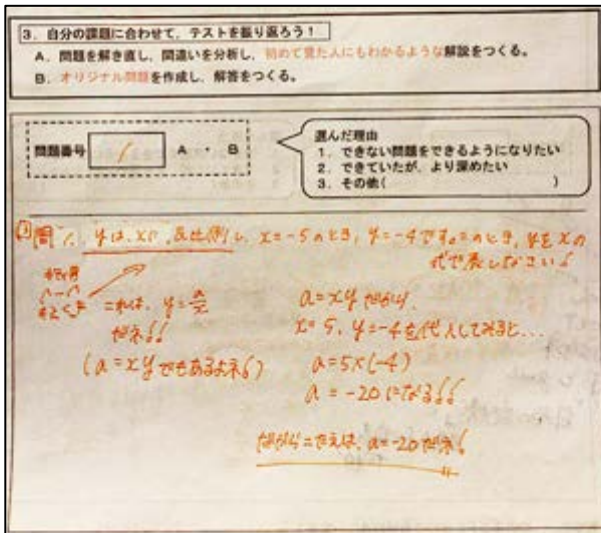 3. 自分の課題に合わせて，テストを振り返ろう！
A. 問題を解き直し，間違いを分析し，初めて見た人にもわかるような解説をつくる。
B. オリジナル問題を作成し，解答をつくる。
問題番号 1 A ・ B
選んだ理由
1. できない問題をできるようになりたい
2. できていたが，より深めたい
3. その他( )
問1. yは、xに、反比例し、x=-5のとき、y=-4です。このとき、yをxの
式で表しなさい!
これは、y=a/x
だネ!!
(a=xyでもあるよネ!)
a=xyだから、
x=5、y=-4を代入してみると…
a=5×(-4)
a=-20になる!!
だからこたえは、a=-20だネ!